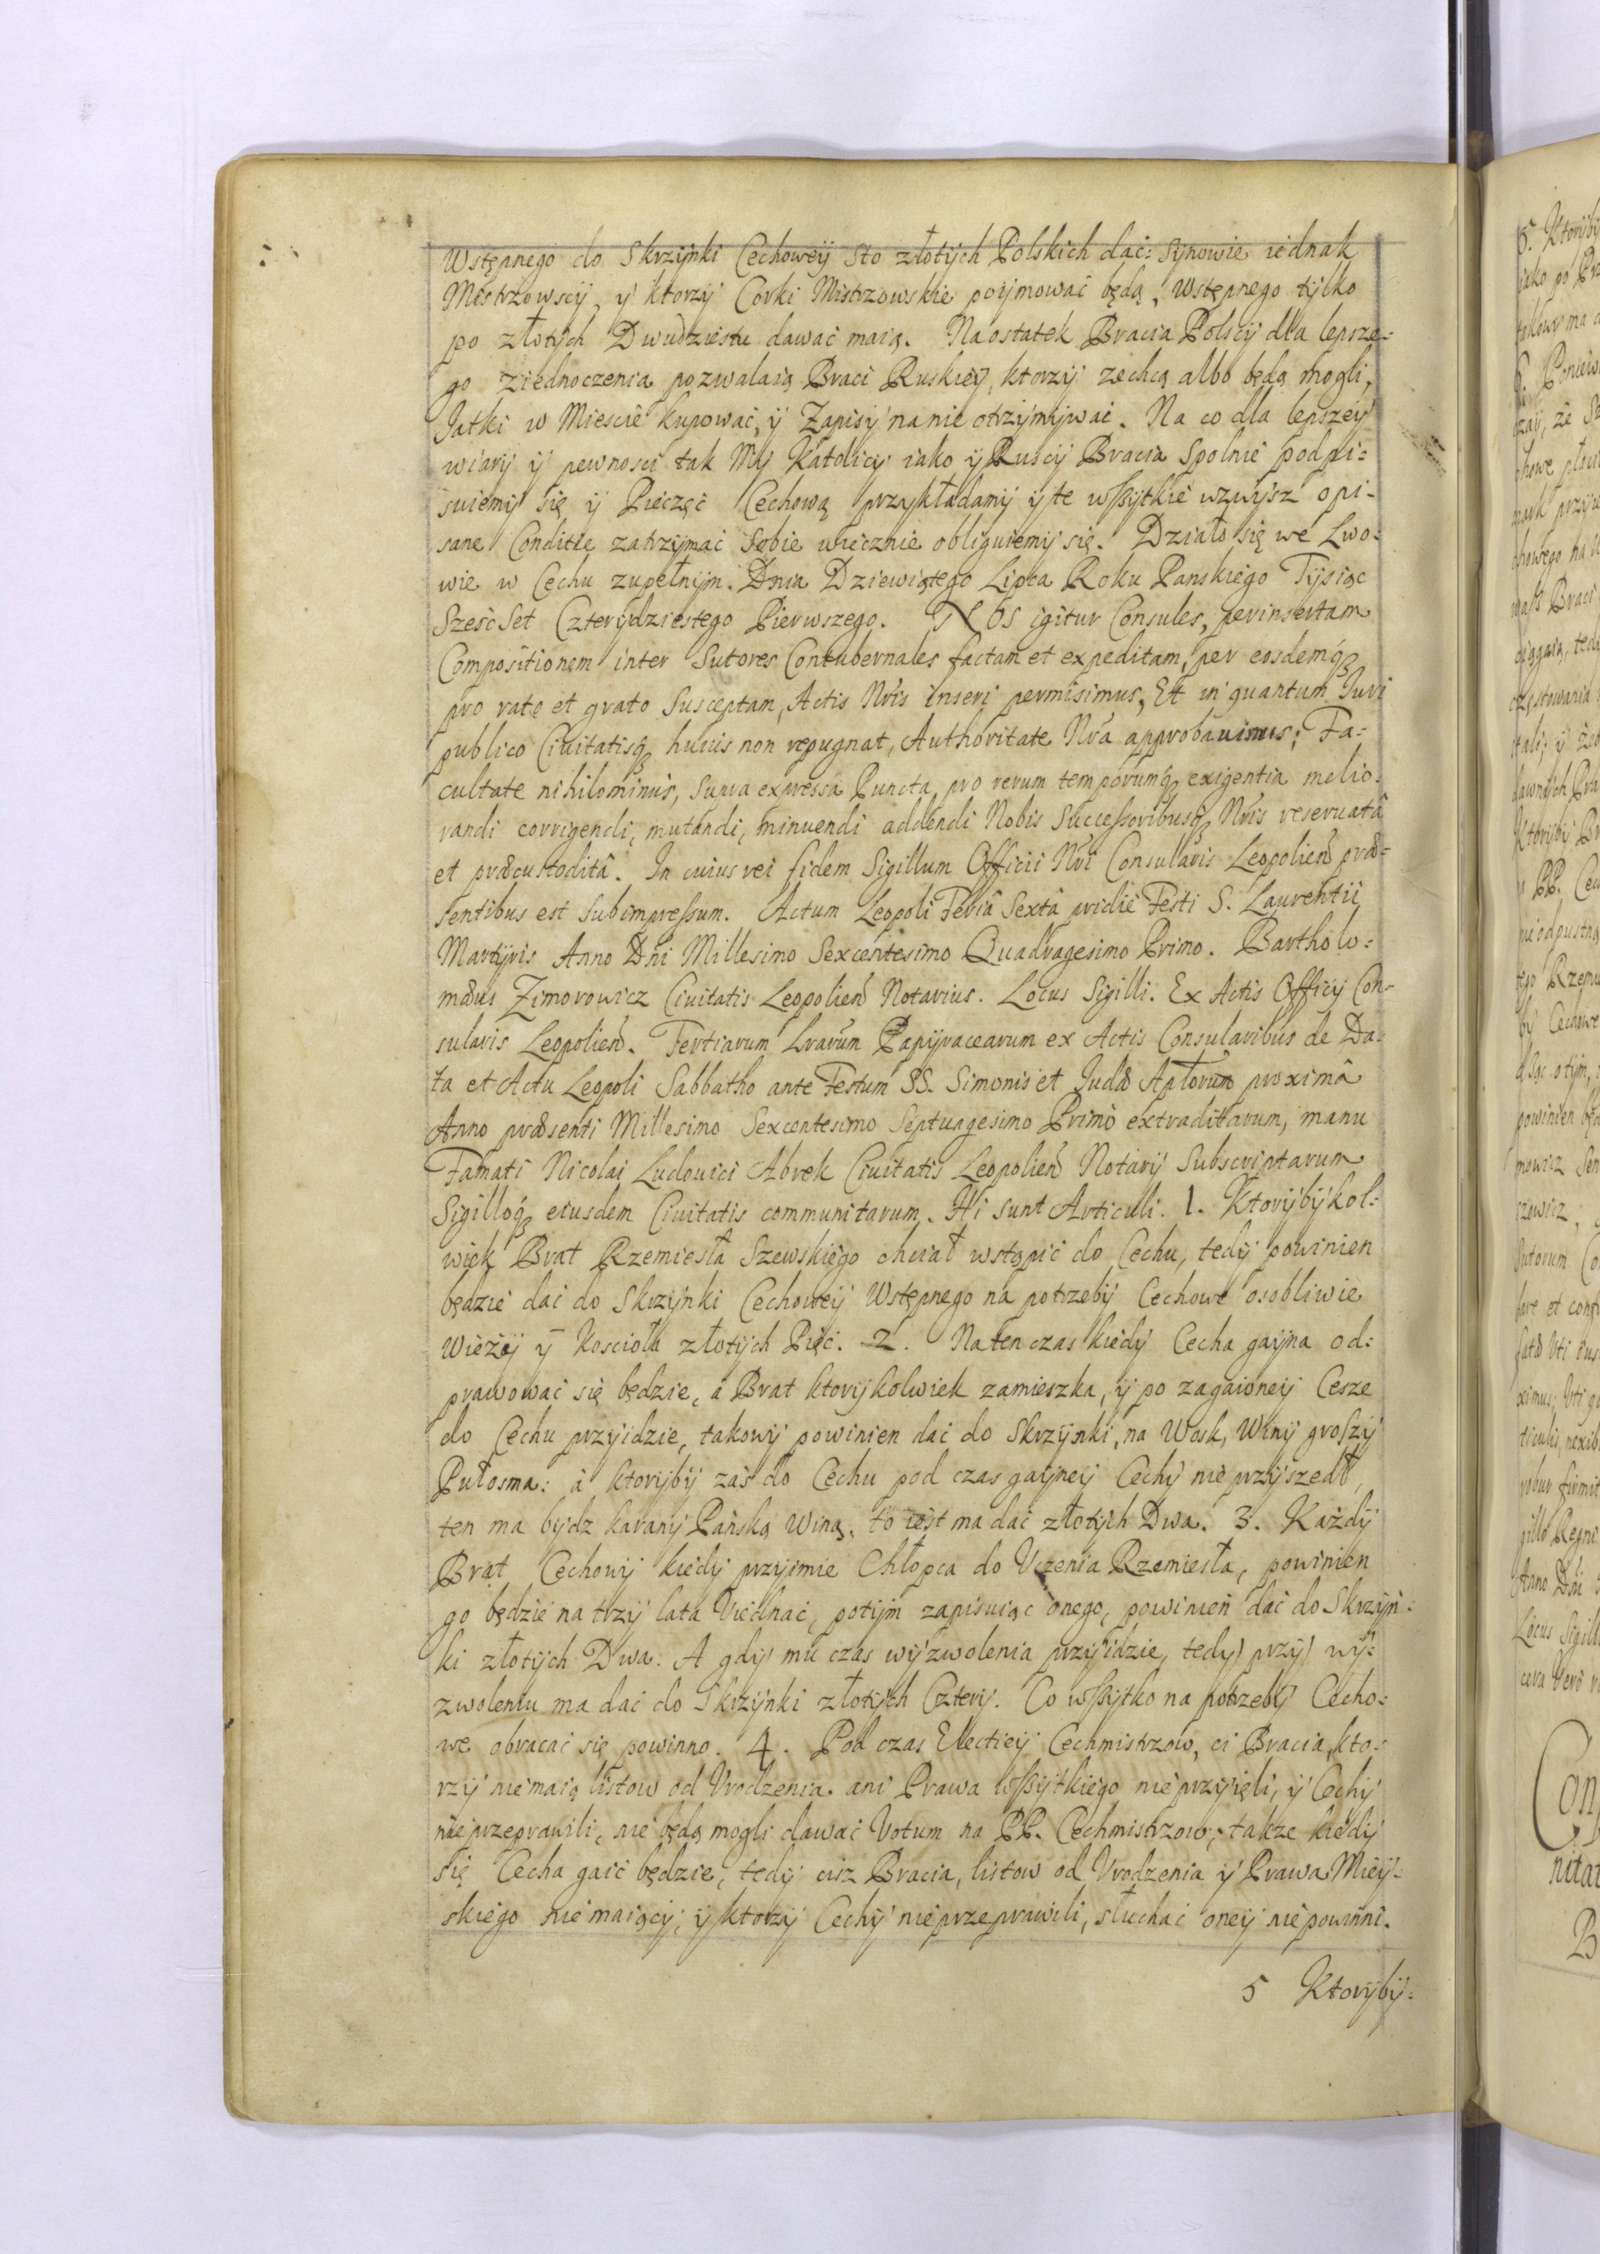 Wstępnego do Skrzynki Cechoweÿ sto złotÿch Polskich dać: Sÿnowie iednak
Mistrzowscÿ, ÿ ktorzÿ Corki Mistrzowskie poijmować będą, Wstępnego tÿlko
po złotÿch Dwudziestu dawać maią. Na ostatek Bracia Polscÿ dla lepsze:
go ziednoczenia pozwalaią Braci Ruskieÿ, ktorzÿ zechcą albo będą mogli,
Jatki w Miescie kupować, ÿ Zapisÿ na nie otrzÿmÿwać. Na co dla lepszeÿ
wiarÿ ÿ pewnosci tak Mÿ Katolicÿ iako ÿ Ruscÿ Bracia Spolnie podpi:
suiemÿ się ÿ Pieczęć Cechową przÿkładamÿ ÿ te wßÿtkie wzwÿsz opi:
sane Conditie zatrzÿmać sobie wiecznie obliguiemÿ się. Działo się we Lwo:
wie w Cechu zupełnÿm. Dnia Dziewiątego Lipca Roku Panskiego Tÿsiąc
Sześć Set Czterÿdziestego Pierwszego. NOS igitur Consules, perinsertam
Compositionem inter Sutores Contubernales factam et expeditam, per eosdemq́ꝫ
pro rato et grato Susceptam, Actis Nrīs inseri permisimus, Et in quantum Juri
publico Ciuitatisq́ꝫ huius non repugnat, Authoritate Nrā approbauimus; Fa:
cultate nihilominus, supra expressa Puncta, pro rerum temporumq́ꝫ exigentia melio:
randi corrigendi, mutandi, minuendi addendi Nobis Successoribusq́ꝫ Nrīs reseruatâ
et præcustoditâ. In cuius rei fidem Sigillum Officii Nrī Consularis Leopolień præ:
sentibus est Subimpressum. Actum Leopoli Feriâ Sextâ pridie Festi S. Laurentii
Martÿris Anno Dnī Millesimo Sexcentesimo Quadragesimo Primo. Bartholo:
mæus Zimorowicz Ciuitatis Leopolień Notarius. Locus Sigilli. Ex Actis Officÿ Con:
sularis Leopolień. Tertiarum Lrarūm Papÿracearum ex Actis Consularibus de Da:
ta et Actu Leopoli Sabbatho ante Festum SS. Simonis et Judæ Aplorūm proximâ
Anno præsenti Millesimo Sexcentesimo Septuagesimo Primo extraditarum, manu
Famati Nicolai Ludouici Abrek Ciuitatis Leopolień Notarÿ Subscriptarum
Sigilloq́ꝫ eiusdem Ciuitatis communitarum. Hi sunt Articuli. 1. Ktorÿbÿkol:
wiek Brat Rzemiesła Szewskiego chciał wstąpić do Cechu, tedÿ powinien
będzie dać do Skrzÿnki Cechoweÿ Wstępnego na potrzebÿ Cechowe osobliwie
Wieżÿ ÿ Kościoła złotÿch Pięć. 2. Na ten czas kiedÿ Cecha gaÿna od:
prawować się będzie, á Brat ktorÿkolwiek zamieszka, ÿ po zagaioneÿ Cesze
do Cechu przÿidzie, takowÿ powinien dać do Skrzÿnki, na Wosk, Winÿ groszÿ
Pułosma: á ktorÿbÿ zaś do Cechu pod czas gaÿneÿ Cechÿ nie przÿszedł,
ten ma bydz karanÿ Pańską Winą, to iest ma dać złotÿch Dwa. 3. Każdÿ
Brat Cechowÿ kiedÿ przÿimie Chłopca do Vczenia Rzemiesła, powinien
go będzie na trzÿ lata Viednać, potÿm zapisuiąc onego, powinien dać do Skrzÿn:
ki złotÿch Dwa. A gdÿ mu czas wÿzwolenia przÿidzie, tedÿ przÿ wÿ:
zwoleniu ma dać do Skrzÿnki złotÿch Czterÿ. Co wßÿtko na potrzebÿ Cecho:
we obracać się powinno. 4. Pod czas Electieÿ Cechmistrzow, ci Bracia, kto:
rzÿ nie maią listow od Vrodzenia ani Prawa wßÿtkiego nie przÿięli, ÿ Cechÿ
nie przeprawili, nie będą mogli dawać Votum na PP. Cechmistrzow; także kiedÿ
się Cecha gaić będzie, tedÿ cisz Bracia, listow od Vrodzenia ÿ Prawa Mieÿ:
skiego nie maiącÿ, ÿ ktorzÿ Cechÿ nie przeprawili, słuchać oneÿ nie powinni.
5 Ktorÿbÿ: